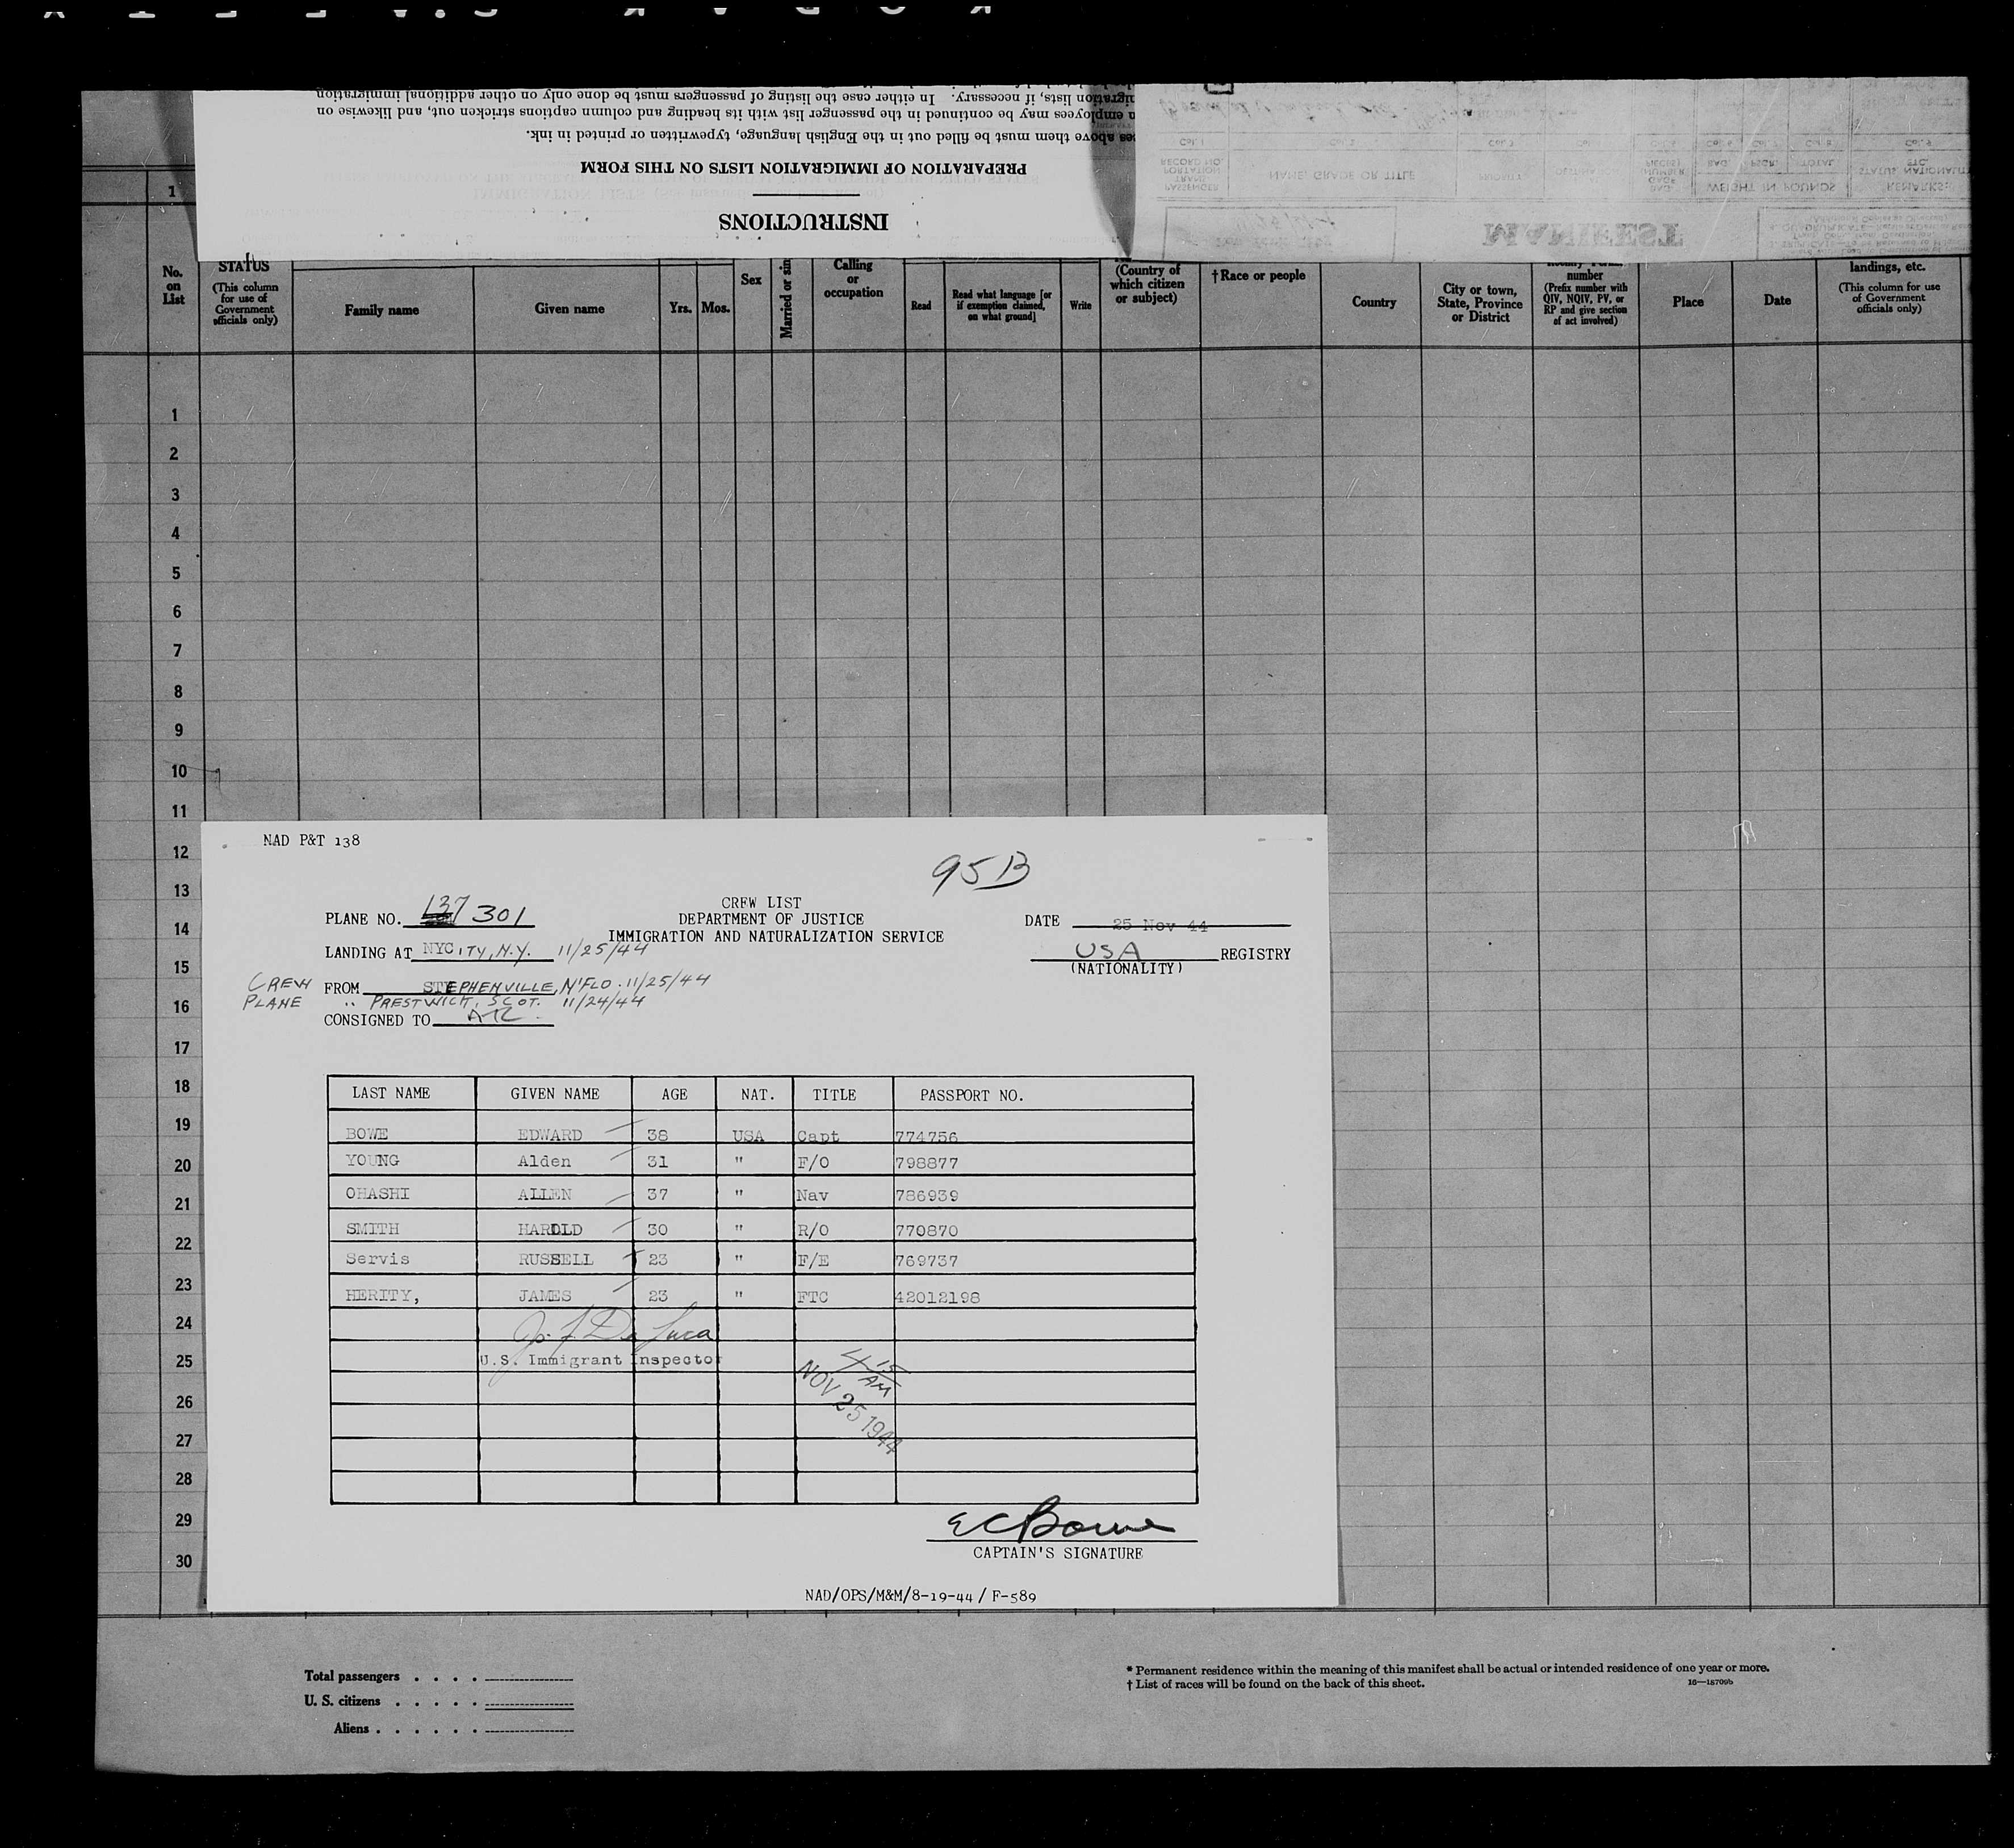 igration lists, if necessary. In either case the listing of passengers must be done only on other additional immigration
employees may be continued in the passenger list with its heading and column captions stricken out, and likewise on
above them must be filled out in the English language, typewritten or printed in ink.
PREPARATION OF IMMIGRATION LISTS ON THIS FORM
INSTRUCTIONS
MANIFEST
WEIGHT IN POUNDS
NAME, GRADE OR TITLE
1
No. on List
STATUS
(This column for use of Government officials only)
Family name
Given name
Yrs.
Mos.
Sex
Married or sin
Calling or occupation
Read
Read what language [or if exemption claimed, on what ground]
Write
(Country of which citizen or subject)
† Race or people
Country
City or town, State, Province or District
number
(Prefix number with QIV, NQIV, PV, or RP and give section of act involved)
Place
Date
landings, etc.
(This column for use of Government officials only)
1
2
3
4
5
6
7
8
9
10
11
12
13
14
15
16
17
18
19
20
21
22
23
24
25
26
27
28
29
30
NAD P&T 138
95B
CREW LIST
PLANE NO. 137 301
DEPARTMENT OF JUSTICE
DATE 25 Nov 44
IMMIGRATION AND NATURALIZATION SERVICE
LANDING AT NYCITY, N.Y. 11/25/44
USA REGISTRY
(NATIONALITY)
CREW FROM STEPHENVILLE, N'FLD. 11/25/44
PLANE " PRESTWICK, SCOT. 11/24/44
CONSIGNED TO ATC
LAST NAME GIVEN NAME AGE NAT. TITLE PASSPORT NO.
BOWE EDWARD 38 USA Capt 774756
YOUNG Alden 31 " F/O 798877
OHASHI ALLEN 37 " Nav 786939
SMITH HAROLD 30 " R/O 770870
Servis RUSSELL 23 " F/E 769737
HERITY, JAMES 23 " FTC 42012198
Jos. F. De Luca
U.S. Immigrant Inspector
4 15 AM
NOV 25 1944
E C Bowe
CAPTAIN'S SIGNATURE
NAD/OPS/M&M/8-19-44 / F-589
Total passengers . . . .
U. S. citizens . . . . .
Aliens . . . . . .
* Permanent residence within the meaning of this manifest shall be actual or intended residence of one year or more.
† List of races will be found on the back of this sheet.
16—18709b